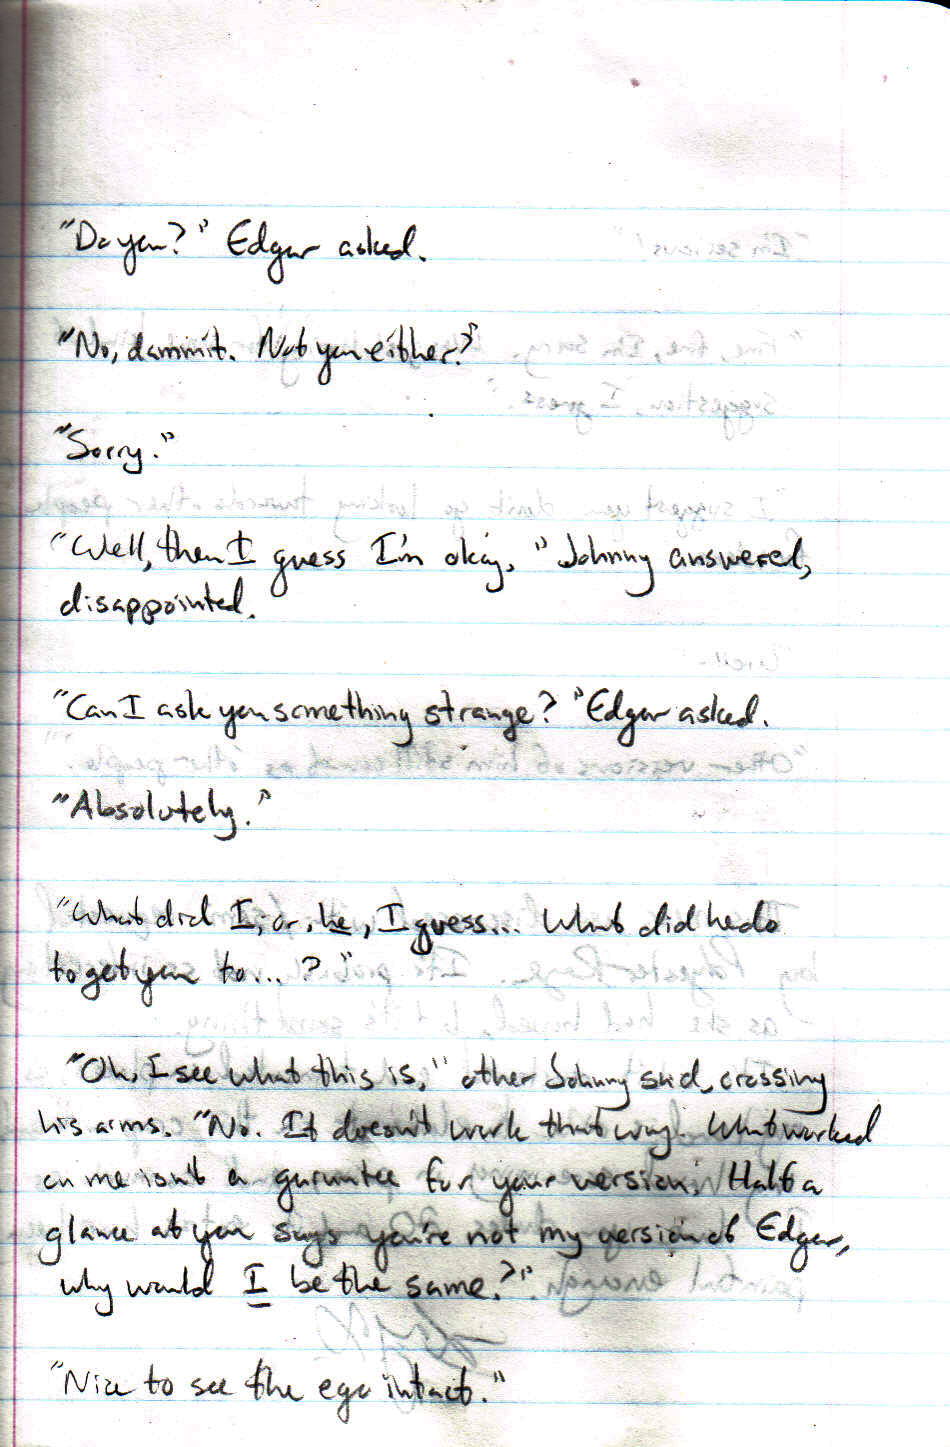 "Do you?" Edgar asked.
"No, dammit. Not you either?"
"Sorry."
"Well, then I guess I'm okay," Johnny answered,
disappointed.
"Can I ask you something strange?" Edgar asked.
"Absolutely."
"What did I, or, he, I guess... What did he do
to get you to...?"
"Oh, I see what this is," other Johnny said, crossing
his arms. "No. It doesn't work that way. What worked
on me isn't a guruntee for your version. Half a
glance at you says you're not my version of Edgar,
why would I be the same?"
"Nice to see the ego intact."